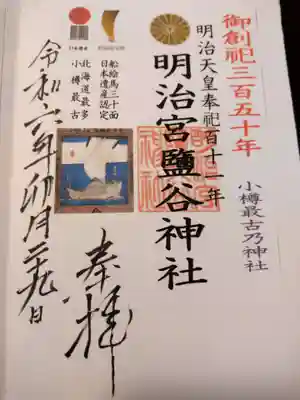 御創祀三百五十年
小樽最古乃神社
明治天皇奉祀百十一年
明治宮鹽谷神社
船絵馬三十面
日本遺産認定
北海道最多
小樽最古
奉拝
令和六年卯月二九日